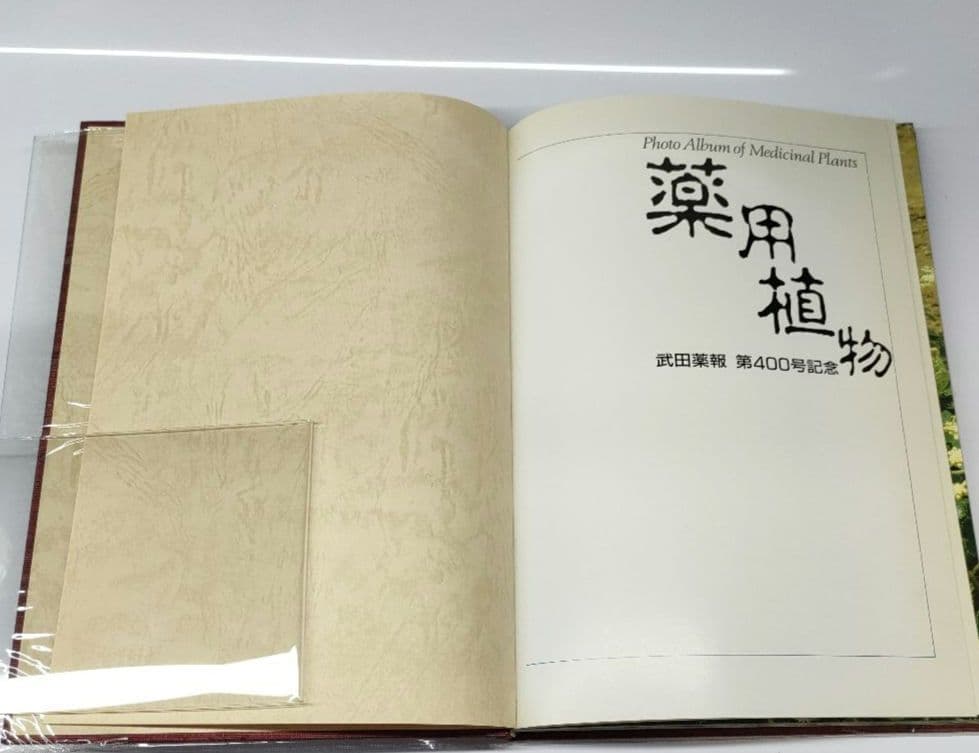 Photo Album of Medicinal Plants
薬用植物
武田薬報 第400号記念